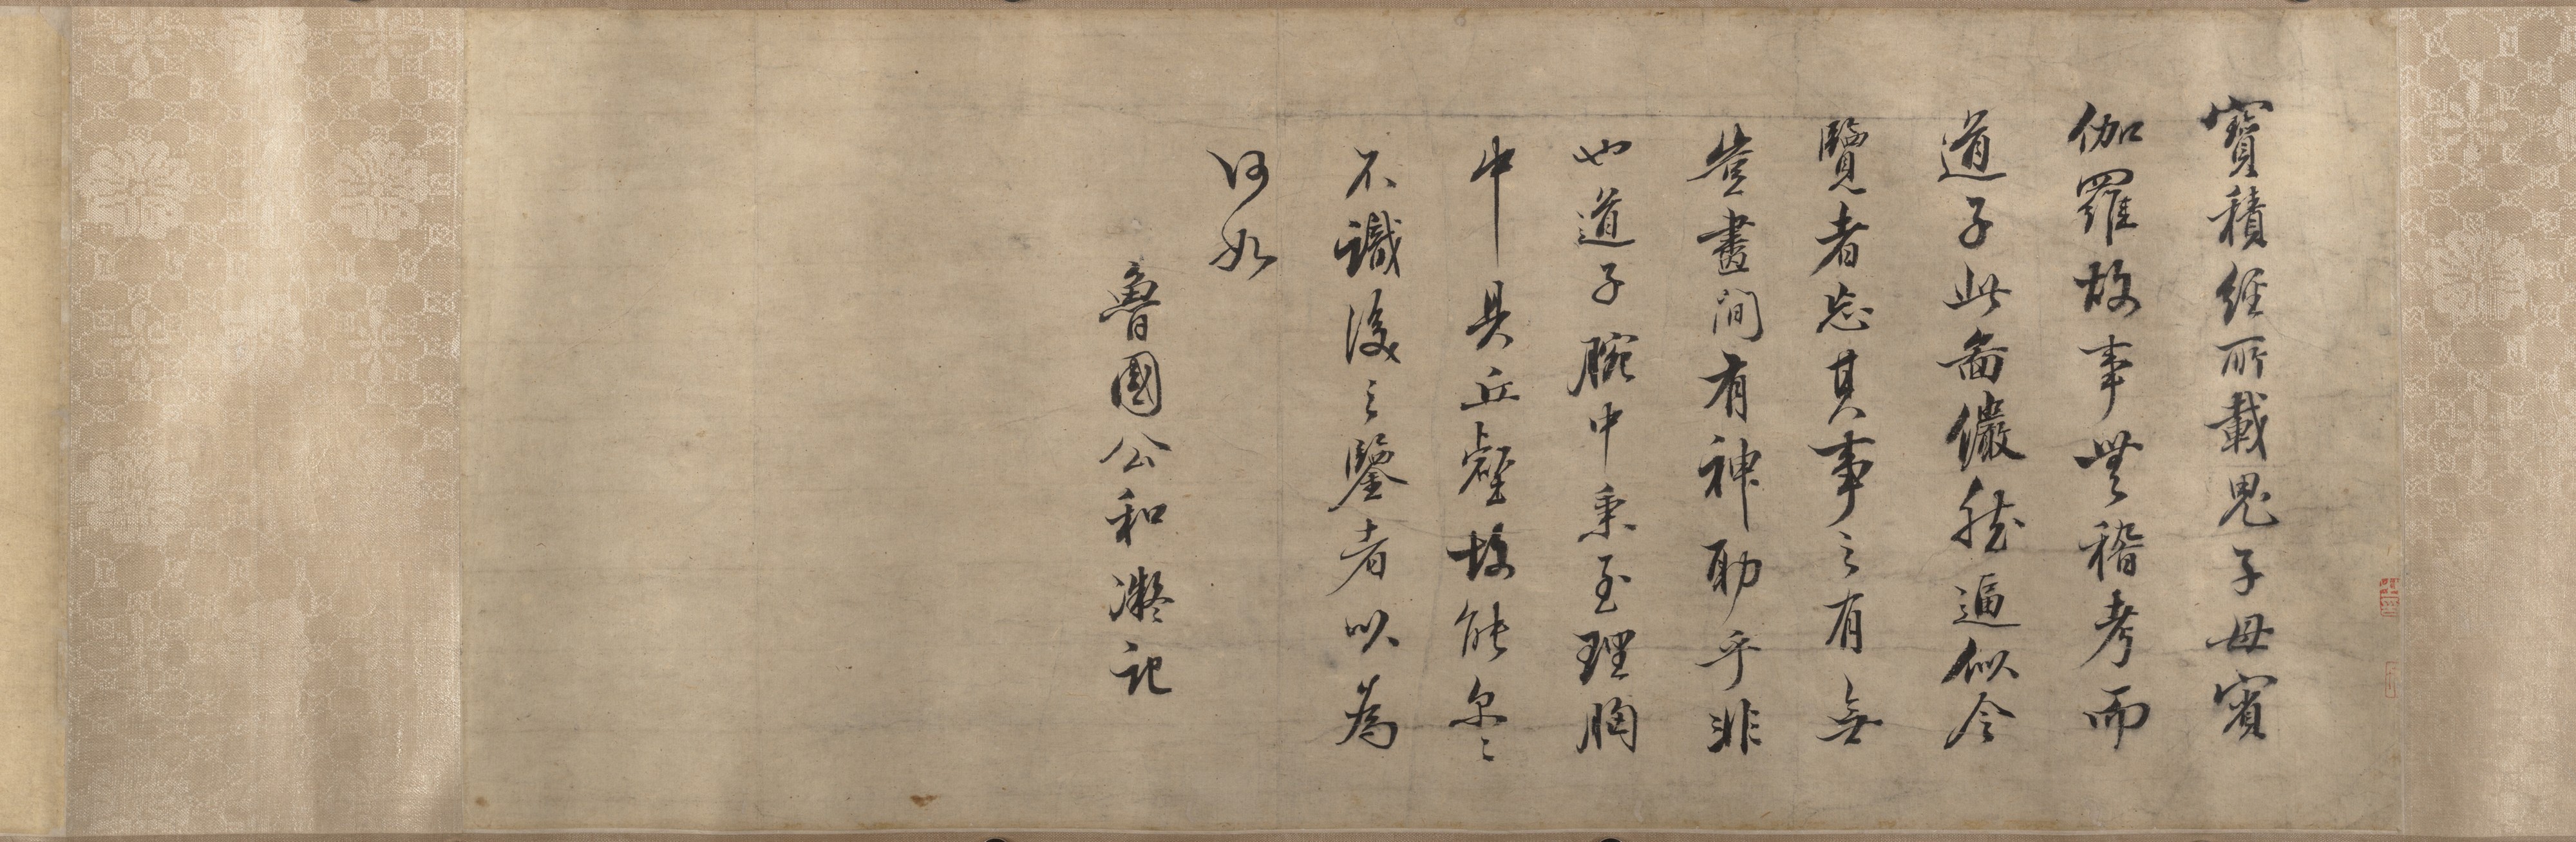 寶積經所載鬼子母賓
伽羅故事無稽考而
道子此啚儼然逼似令
覽者忘其事之有無
豈畫間有神助乎非
也道子腕中秉至理胸
中具丘壑故能尔〻
不識後之鑒者以為
何如
魯國公和凝記